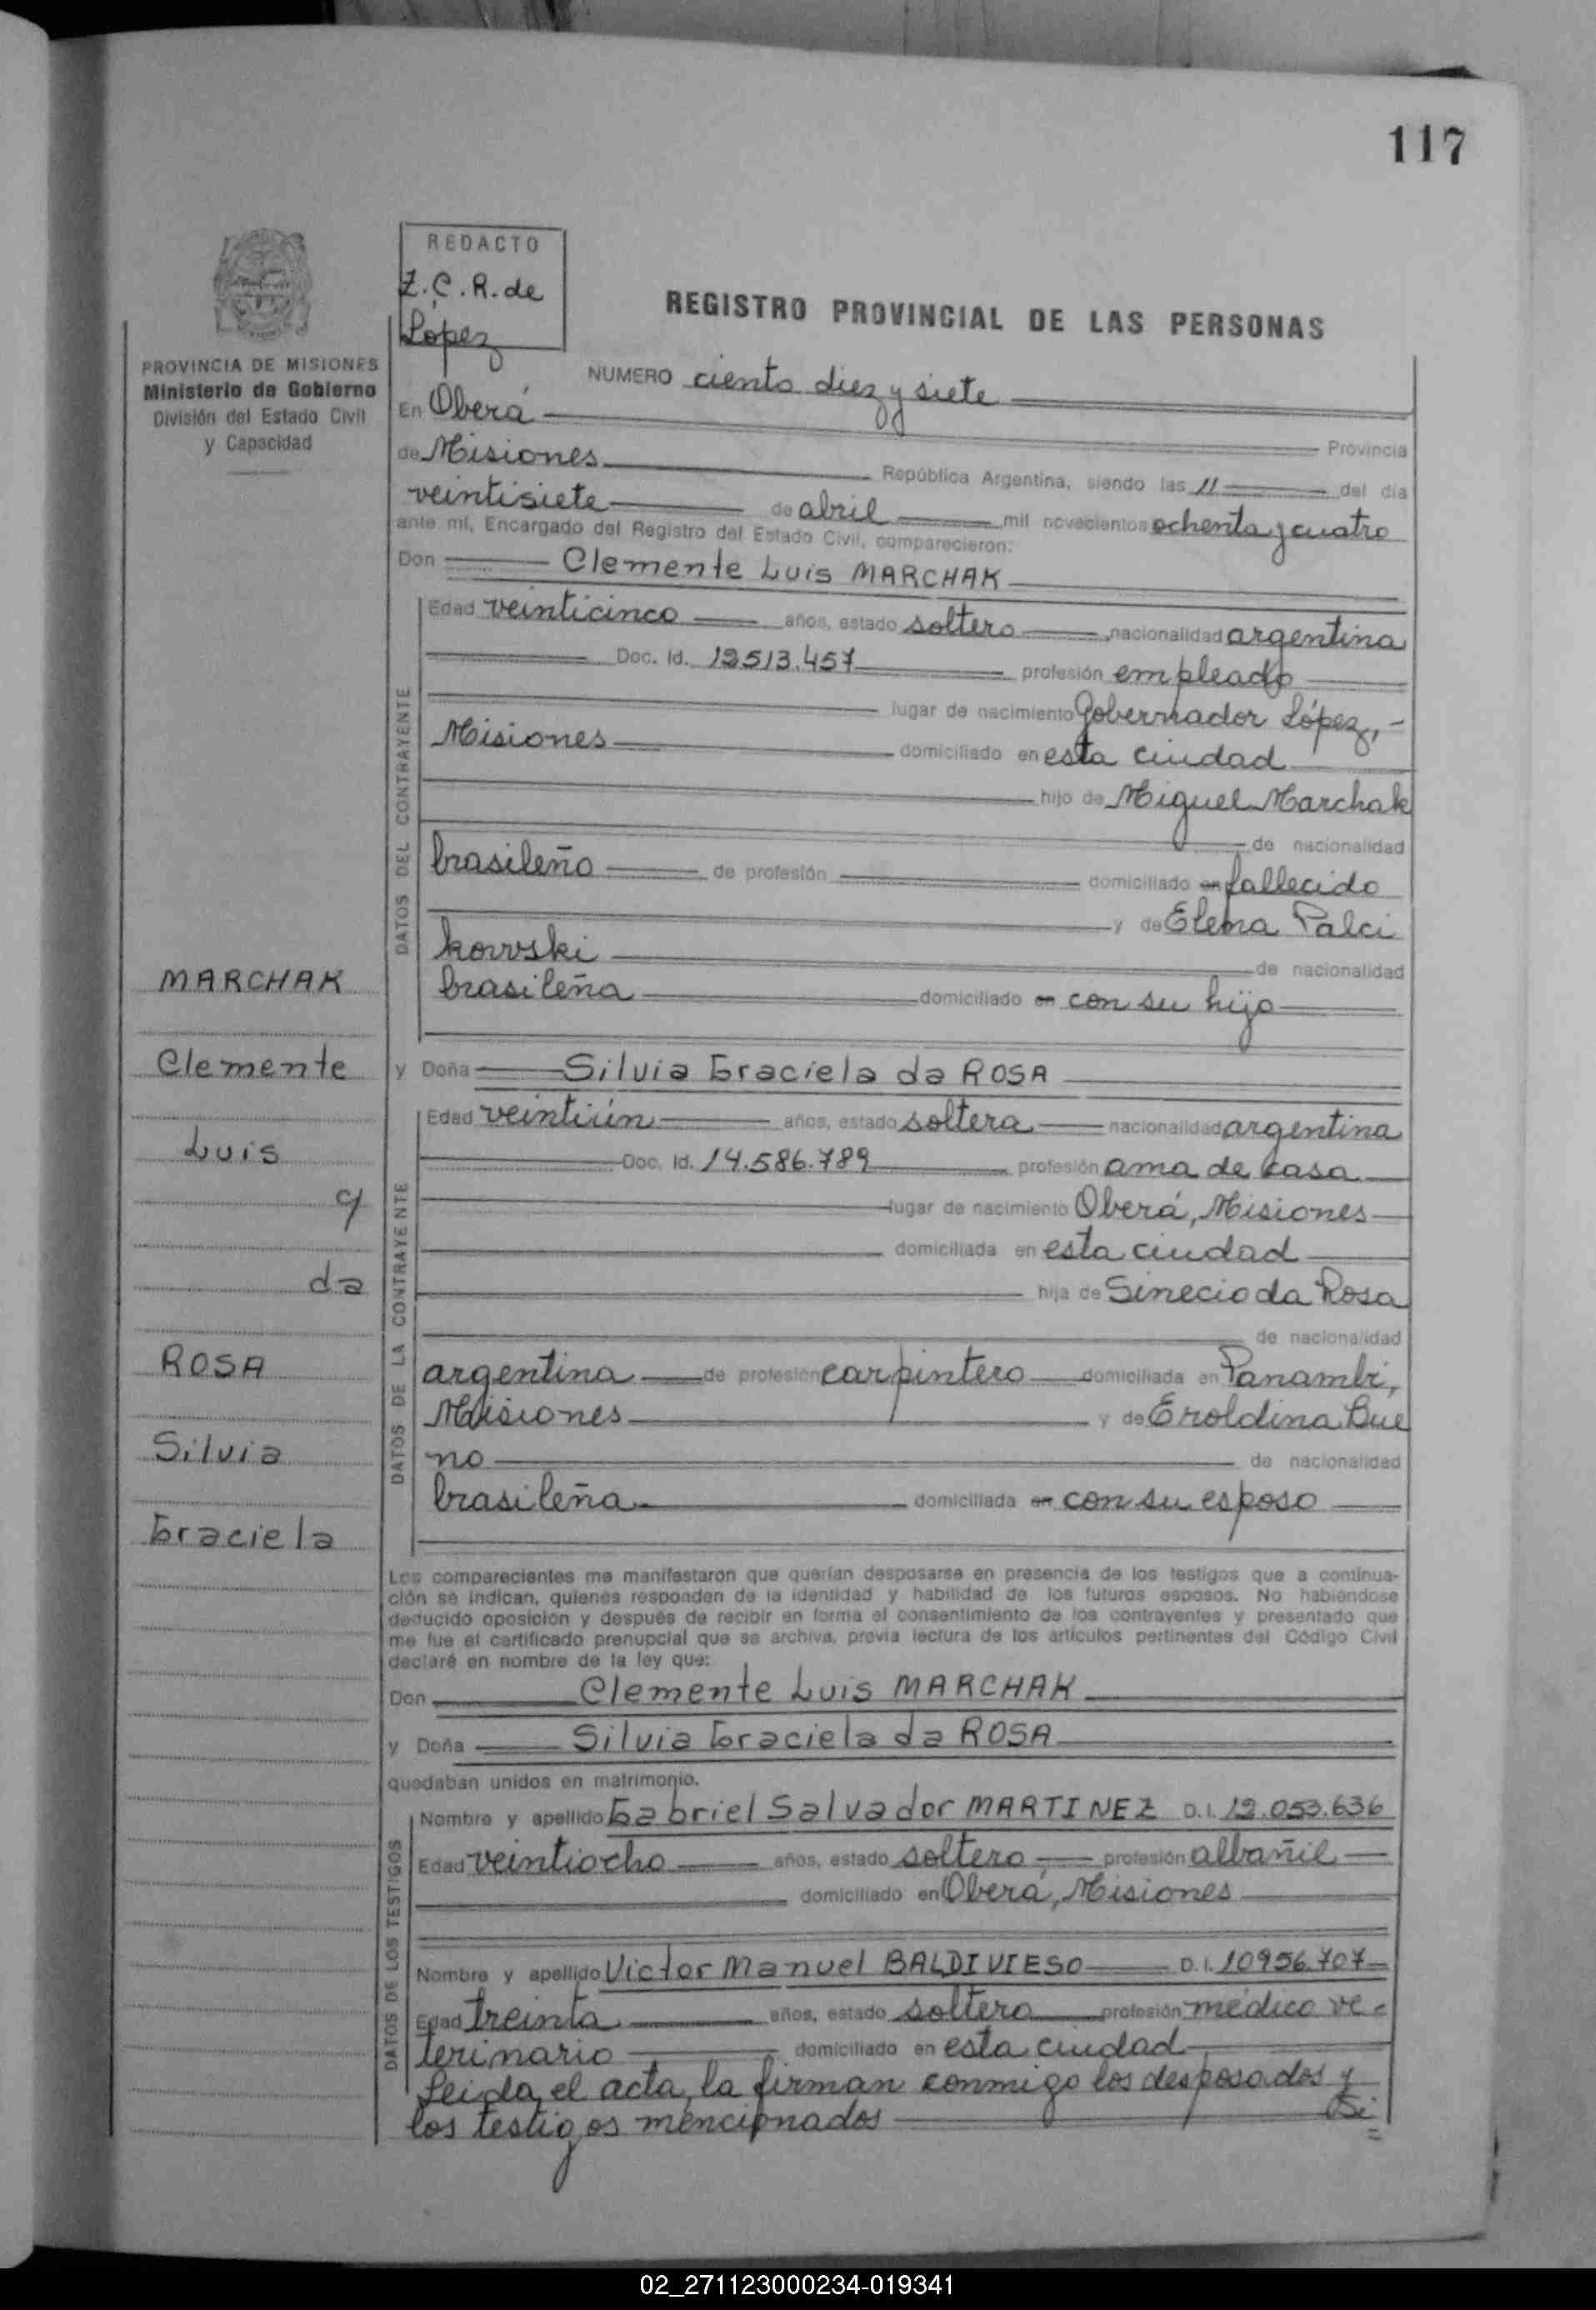 117
REDACTO
Z.C.R. de
López
REGISTRO PROVINCIAL DE LAS PERSONAS
PROVINCIA DE MISIONES
Ministerio de Gobierno
División del Estado Civil
y Capacidad
NUMERO ciento diez y siete
En Oberá
Provincia
de Misiones República Argentina, siendo las 11 del día
veintisiete de abril mil novecientos ochenta y cuatro
ante mí, Encargado del Registro del Estado Civil, comparecieron:
Don Clemente Luis MARCHAK
DATOS DEL CONTRAYENTE
Edad veinticinco años, estado soltero nacionalidad argentina
Doc. Id. profesión empleado
lugar de nacimiento Gobernador López, -
Misiones domiciliado en esta ciudad
hijo de Miguel Marchak
de nacionalidad
brasileño de profesión domiciliado en fallecido
y de Elena Palci
kowski de nacionalidad
brasileña domiciliado en con su hijo
MARCHAK
Clemente
Luis
y
da
ROSA
Silvia
Graciela
y Doña Silvia Graciela da ROSA
DATOS DE LA CONTRAYENTE
Edad veintiún años, estado soltera nacionalidad argentina
Doc. Id. 14.586.789 profesión ama de casa
lugar de nacimiento Oberá, Misiones
domiciliada en esta ciudad
hija de Sinecio da Rosa
de nacionalidad
argentina de profesión carpintero domiciliada en Panambí,
Misiones y de Eroldina Bue
no de nacionalidad
brasileña domiciliada en con su esposo
Los comparecientes me manifestaron que querían desposarse en presencia de los testigos que a continua-
ción se indican, quienes responden de la identidad y habilidad de los futuros esposos. No habiéndose
deducido oposición y después de recibir en forma el consentimiento de los contrayentes y presentado que
me fue el certificado prenupcial que se archiva, previa lectura de los artículos pertinentes del Código Civil
declaré en nombre de la ley que:
Don Clemente Luis MARCHAK
y Doña Silvia Graciela da ROSA
quedaban unidos en matrimonio.
DATOS DE LOS TESTIGOS
Nombre y apellido Gabriel Salvador MARTINEZ D.I. 12.053.636
Edad veintiocho años, estado soltero profesión albañil
domiciliado en Oberá, Misiones
Nombre y apellido Victor Manuel BALDIVIESO D.I. 10956.707
Edad treinta años, estado soltero profesión médico ve-
terinario domiciliado en esta ciudad
Leida el acta, la firman conmigo los desposados y
los testigos mencionados
02_271123000234-019341